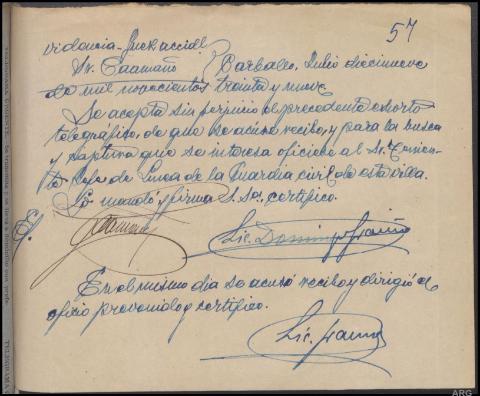 57
videncia - Juez accidl.
Sr. Caamaño
Carballo, Julio diecinueve
de mil novecientos treinta y nueve
Se acepta sin perjuicio el precedente exhorto
telegráfico, de que se acuse recibo, y para la busca
y captura que se interesa oficiese al Sr. Tenien-
te Jefe de Linea de la Guardia civil de esta villa.
Lo mandó y firma S. Sª. certifico.
E/.
Caamaño
Lic. Domingo
En el mismo dia se acusó recibo y dirigió el
oficio prevenido y certifico.
Lic.
TELEGRAMA
ARG